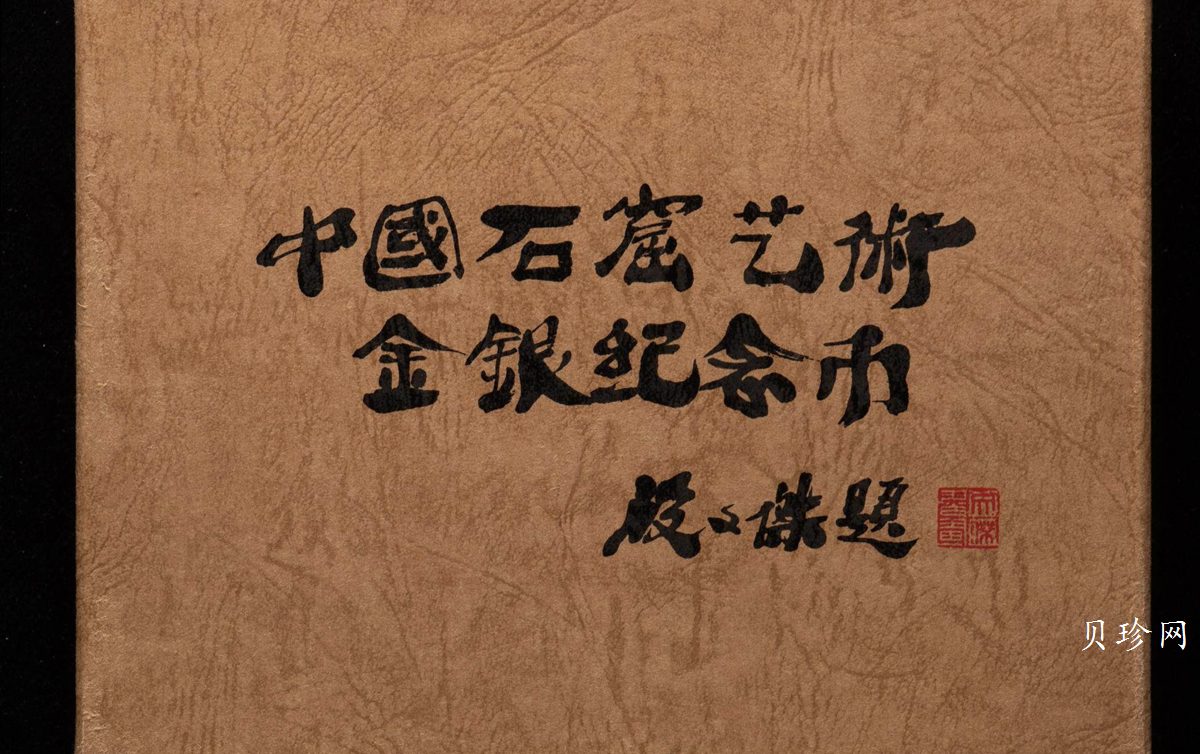 中國石窟艺術
金銀紀念币
段文傑題
贝珍网